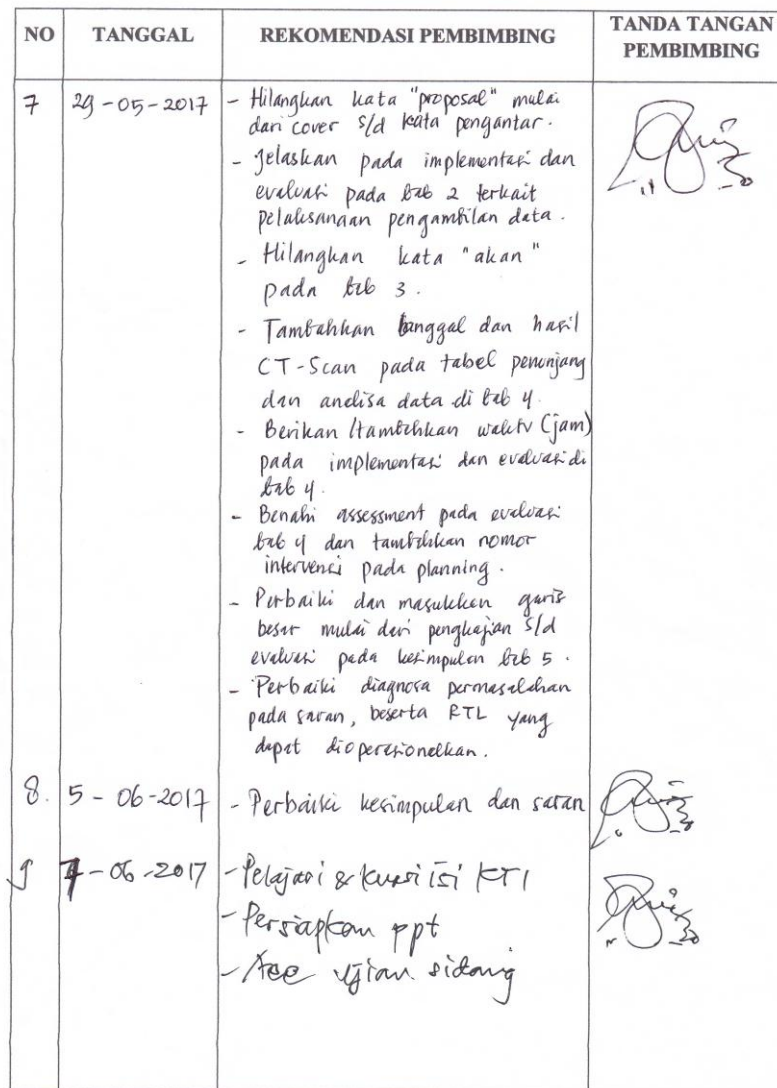 NO TANGGAL REKOMENDASI PEMBIMBING TANDA TANGAN PEMBIMBING
7 29-05-2017 - Hilangkan kata "proposal" mulai
dari cover s/d kata pengantar.
- Jelaskan pada implementasi dan
evaluasi pada bab 2 terkait
pelaksanaan pengambilan data.
- Hilangkan kata "akan"
pada bab 3.
- Tambahkan tanggal dan hasil
CT-Scan pada tabel penunjang
dan analisa data di bab 4.
- Berikan/tambahkan waktu (jam)
pada implementasi dan evaluasi di
bab 4.
- Benahi assessment pada evaluasi
bab 4 dan tambahkan nomor
intervensi pada planning.
- Perbaiki dan masukkan garis
besar mulai dari pengkajian s/d
evaluasi pada kesimpulan bab 5.
- Perbaiki diagnosa permasalahan
pada saran, beserta RTL yang
dapat dioperasionalkan.
8. 5-06-2017 - Perbaiki kesimpulan dan saran
9 7-06-2017 - Pelajari & kuasai isi KTI
- Persiapkan ppt
- Acc ujian sidang